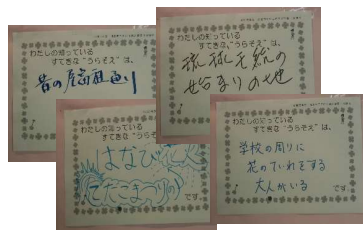 わたしの知っている
すてきな“うらそえ”は、
昔の
わたしの知っている
すてきな“うらそえ”は、
琉球王統の
始まりの地
わたしの知っている
すてきな“うらそえ”は、
はなび花火
てだこまつりの
です。
わたしの知っている
すてきな“うらそえ”は、
学校の周りに
花のていれをする
大人がいる
です。